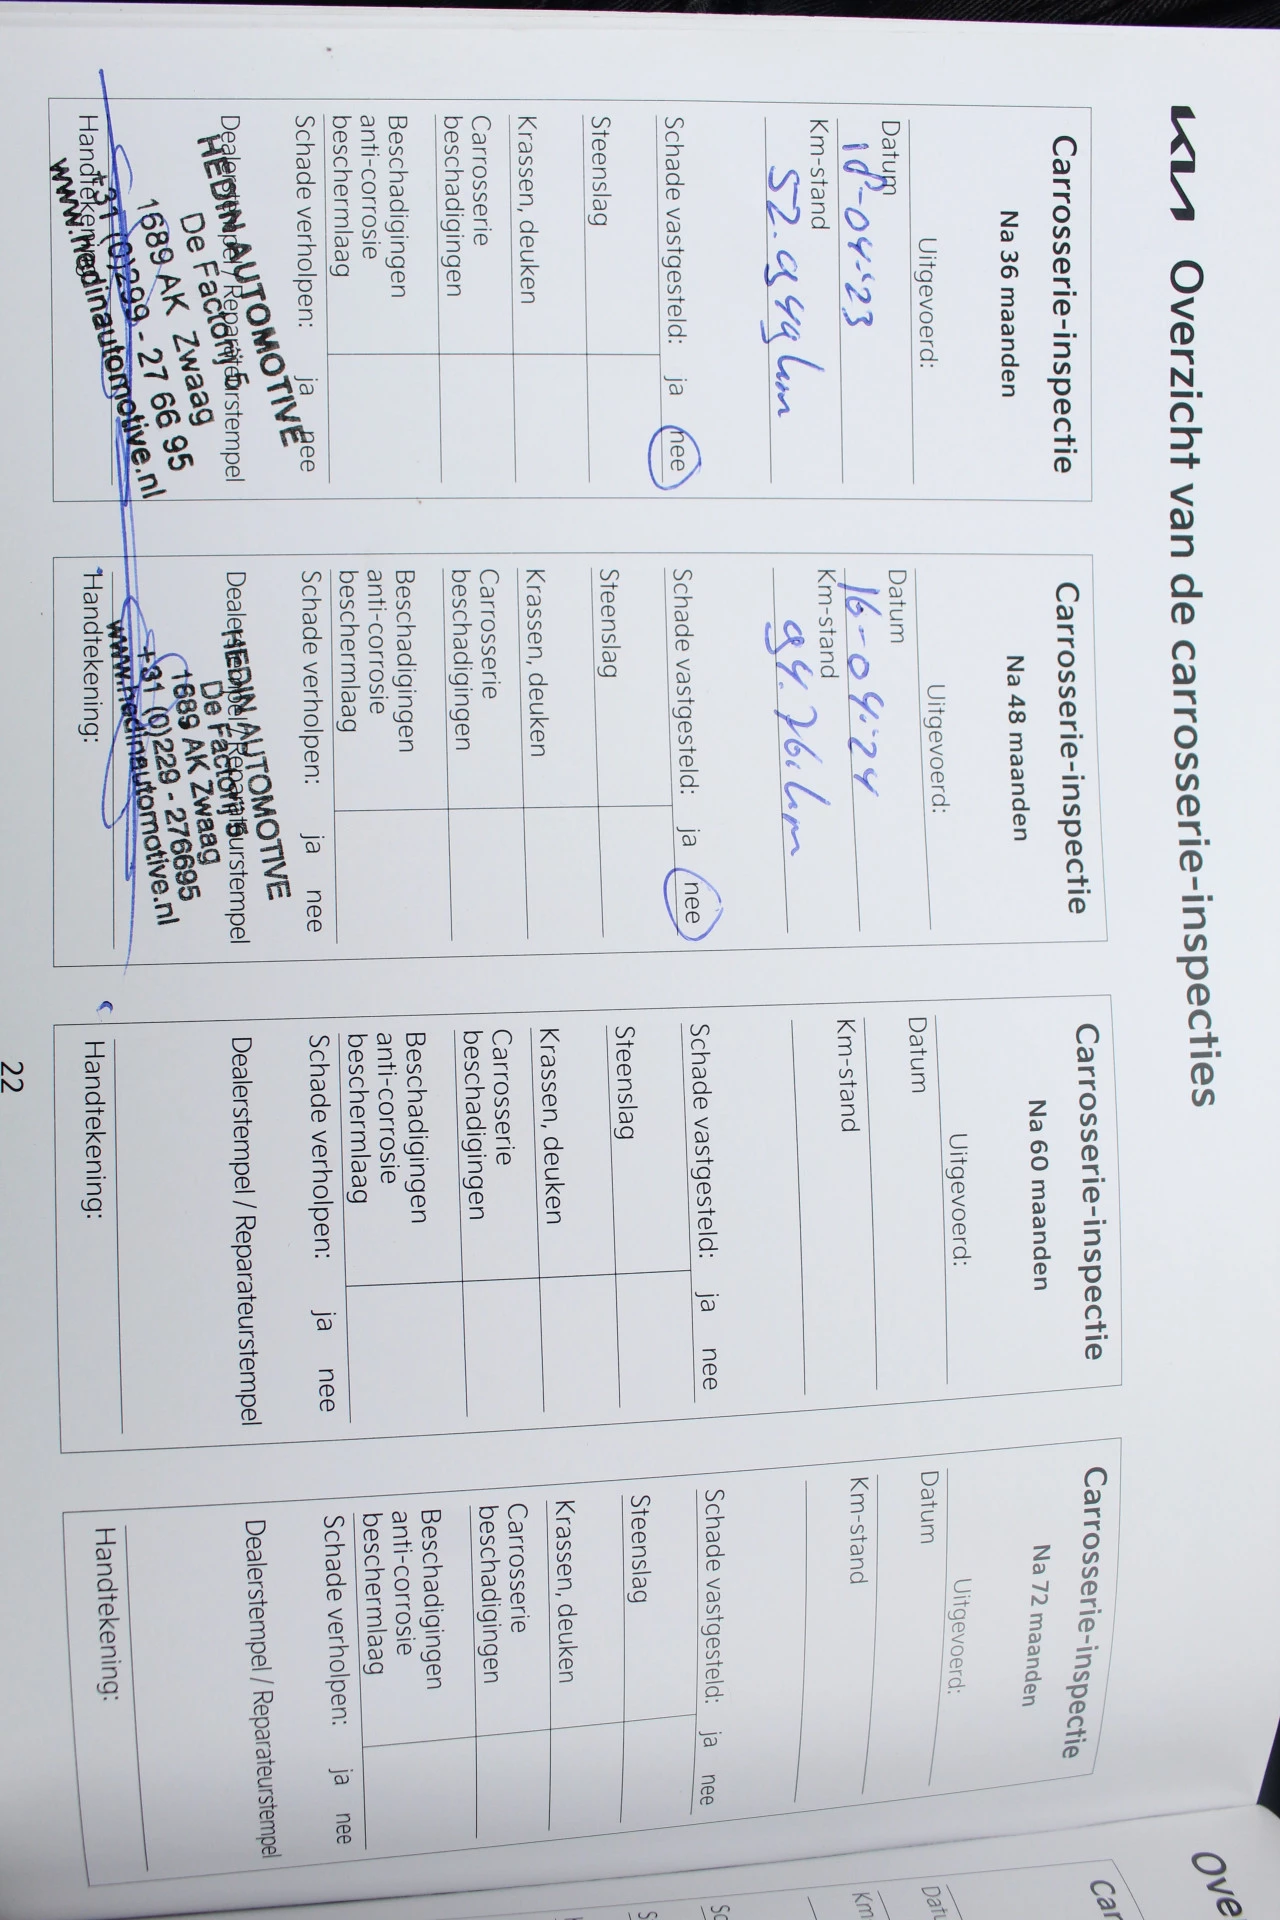 KIA Overzicht van de carrosserie-inspecties
Carrosserie-inspectie
Na 36 maanden
Uitgevoerd:
Datum
18-04-'23
Km-stand
Schade vastgesteld: ja nee
Steenslag
Krassen, deuken
Carrosserie
beschadigingen
Beschadigingen
anti-corrosie
beschermlaag
Schade verholpen: ja nee
Dealerstempel / Reparateurstempel
HEDIN AUTOMOTIVE
De Factorij 5
1689 AK Zwaag
+31 (0)299 - 27 66 95
www.hedinautomotive.nl
Handtekening:
Carrosserie-inspectie
Na 48 maanden
Uitgevoerd:
Datum
16-04-'24
Km-stand
Schade vastgesteld: ja nee
Steenslag
Krassen, deuken
Carrosserie
beschadigingen
Beschadigingen
anti-corrosie
beschermlaag
Schade verholpen: ja nee
Dealerstempel / Reparateurstempel
HEDIN AUTOMOTIVE
De Factorij 5
1689 AK Zwaag
+31 (0)229 - 276695
www.hedinautomotive.nl
Handtekening:
Carrosserie-inspectie
Na 60 maanden
Uitgevoerd:
Datum
Km-stand
Schade vastgesteld: ja nee
Steenslag
Krassen, deuken
Carrosserie
beschadigingen
Beschadigingen
anti-corrosie
beschermlaag
Schade verholpen: ja nee
Dealerstempel / Reparateurstempel
Handtekening:
Carrosserie-inspectie
Na 72 maanden
Uitgevoerd:
Datum
Km-stand
Schade vastgesteld: ja nee
Steenslag
Krassen, deuken
Carrosserie
beschadigingen
Beschadigingen
anti-corrosie
beschermlaag
Schade verholpen: ja nee
Dealerstempel / Reparateurstempel
Handtekening:
22
Ove
Car
Datu
Km
Sc
S